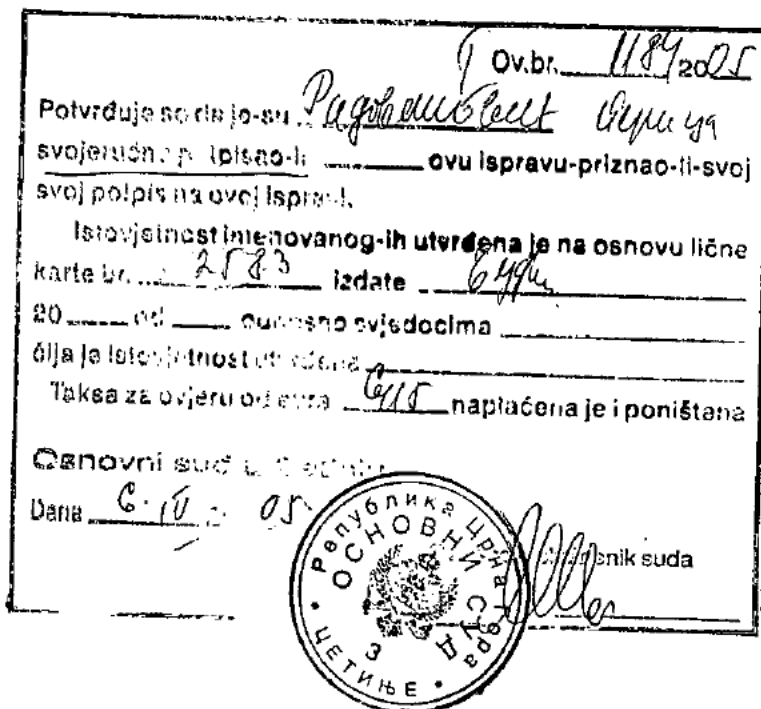 Ov.br. 1184/2005
Potvrđuje se da je-su
svojeručno potpisao-li ovu ispravu-priznao-li-svoj
svoj potpis na ovoj ispravi.
Istovjetnost imenovanog-ih utvrđena je na osnovu lične
karte br. 2583 izdate
20 od odnosno svjedocima
čija je istovjetnost utvrđena
Taksa za ovjeru od eura naplaćena je i poništena
Osnovni sud u Cetinju
Dana 6. IV 05
snik suda
Република Црна Гора
ОСНОВНИ СУД
3
ЦЕТИЊЕ